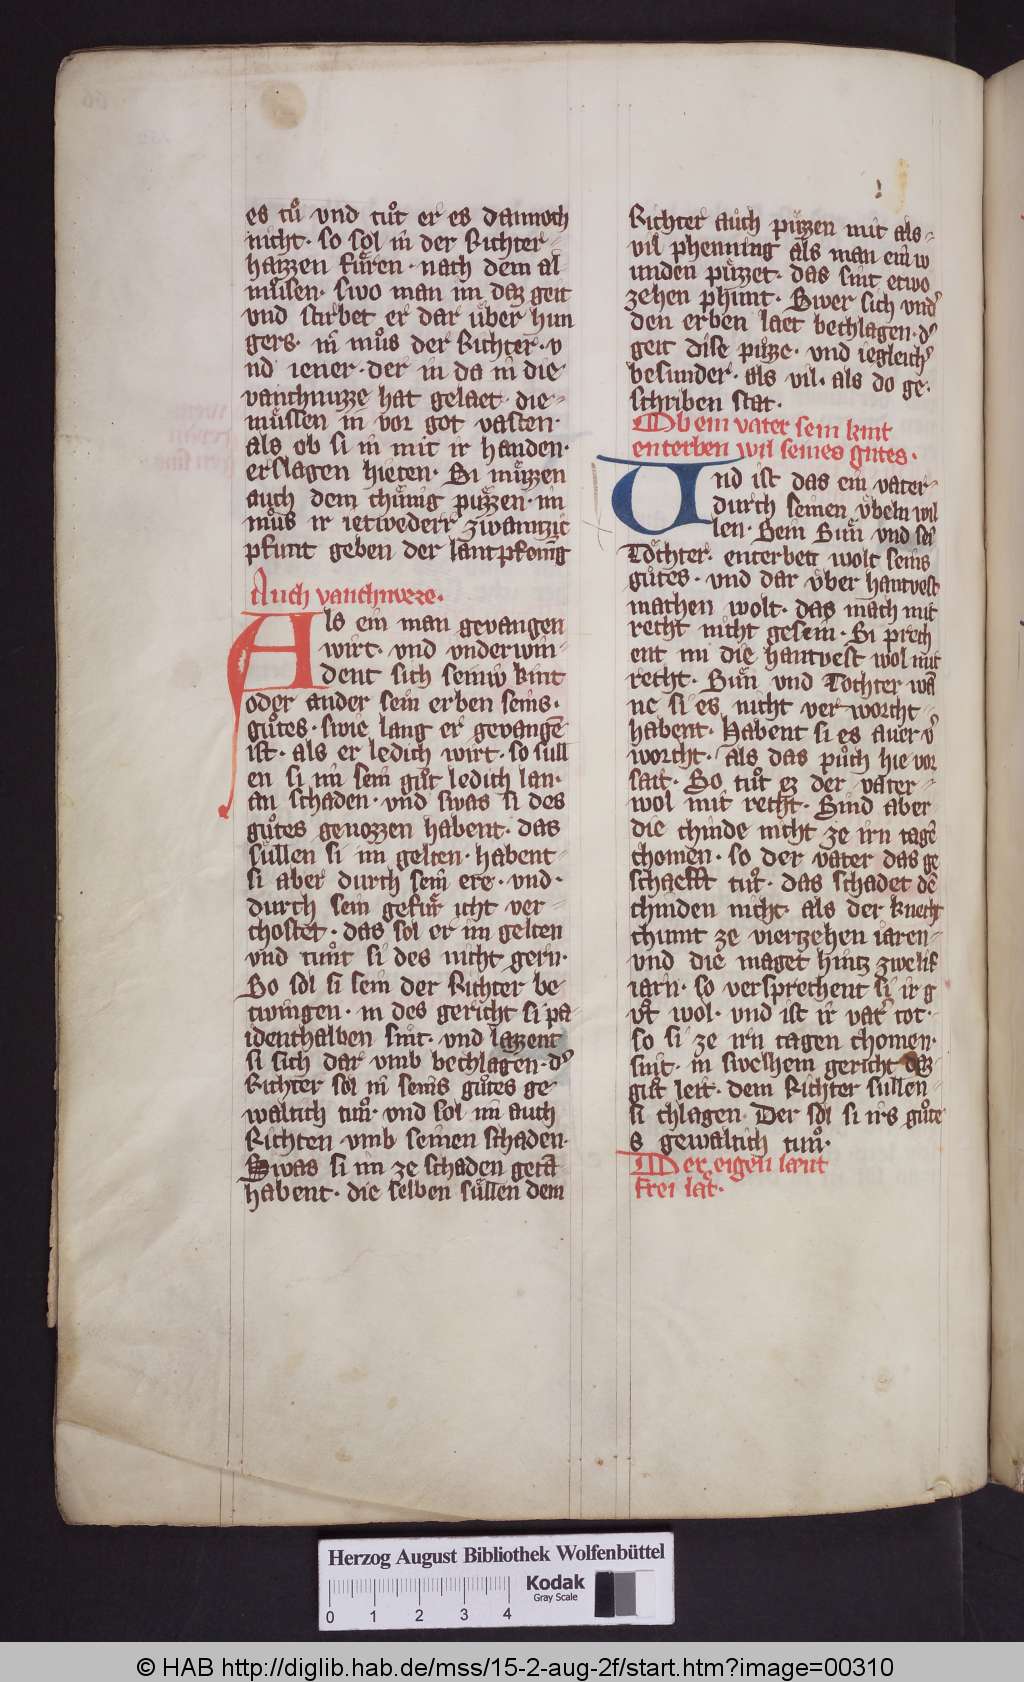 es tuͦ vnd tuͦt er es dannoch
nicht · so sol in der Richter
haizzen fuͤren · nach dem al
muͦsen · swo man im daz geit
vnd stirbet er dar uͤber hun
gers · im muͦs der Richter · v
nd iener · der in da in die
vanchnuzze hat gelaet · die
muͤssen in vor got vasten ·
als ob si in mit ir handen ·
erslagen hieten · Si muͤzzen
auch dem chuͤnig puͤzzen · im
muͦs ir ietweder zwaintzic
pfunt geben der lantpfoͤnig
Auch vanchnveze ·
Als ein man gevangen
wirt · vnd vnderwin
dent sich seiniv kint
oder ander sein erben seins ·
guͦtes · swie lang er gevangē
ist · als er ledich wirt · so sull
en si im sein guͦt ledich lan ·
an schaden · vnd swas si des
guͦtes genozzen habent · das
suͤllen si im gelten · habent
si aber durch sein ere · vnd ·
durch sein gefuͤr icht ver
chostet · das sol er im gelten
vnd tuͦnt si des nicht gern ·
So sol si sein der Richter be
twingen · in des gericht si pa
identhalben sint · vnd lazzent
si sich dar vmb bechlagen · d͛
Richter sol in seins guͦtes ge
waltich tuͦn · vnd sol im auch
Richten vmb seinen schaden ·
Swas si im ze schaden getā
habent · die selben suͤllen dem
Richter auch puͤzzen mit als
vil phenning als man ein w
unden puͤzzet · das sint etwo
zehen phunt · Swer sich vnd͛
den erben laet bechlagen · d͛
geit dise puͤzze · vnd iegleich͛
besunder · als vil · als do ge ·
schriben stat ·
Ob ein vater sein kint
enterben wil seines gutes ·
Vnd ist das ein vater
durch seinen vͤbeln wil
len · Sein Suͤn vnd sei
Toͤchter · enterben wolt seins
guͦtes · vnd dar vͤber hantvest
machen wolt · das mach mit
recht nicht gesein · Si prech
ent im die hantvest wol mit
recht · Suͤn vnd Tochter wā
ne si es nicht ver worcht
habent · Habent si es aver v͛
worcht · als das puͦch hie vor
sait · So tuͦt ez der vater
wol mit recht · Sind aber
die chinde nicht ze irn tagē
chomen · so der vater das ge
schaefft tuͦt · das schadet dē
chinden nicht · als der knecht
chumt ze vierzehen iaren
vnd die maget hintz zwelif
iarn · so versprechent si ir g
uͦt wol · vnd ist ir vat͛ tot ·
so si ze irn tagen chomen ·
sint · in swelhem gericht das
guͦt leit · dem Richter sullen
si chlagen · Der sol si irs guͦte
s gewaltich tuͦn ·
Der eigen laeut
frei laͤt ·
Herzog August Bibliothek Wolfenbüttel
0 1 2 3 4
Kodak
Gray Scale
© HAB http://diglib.hab.de/mss/15-2-aug-2f/start.htm?image=00310